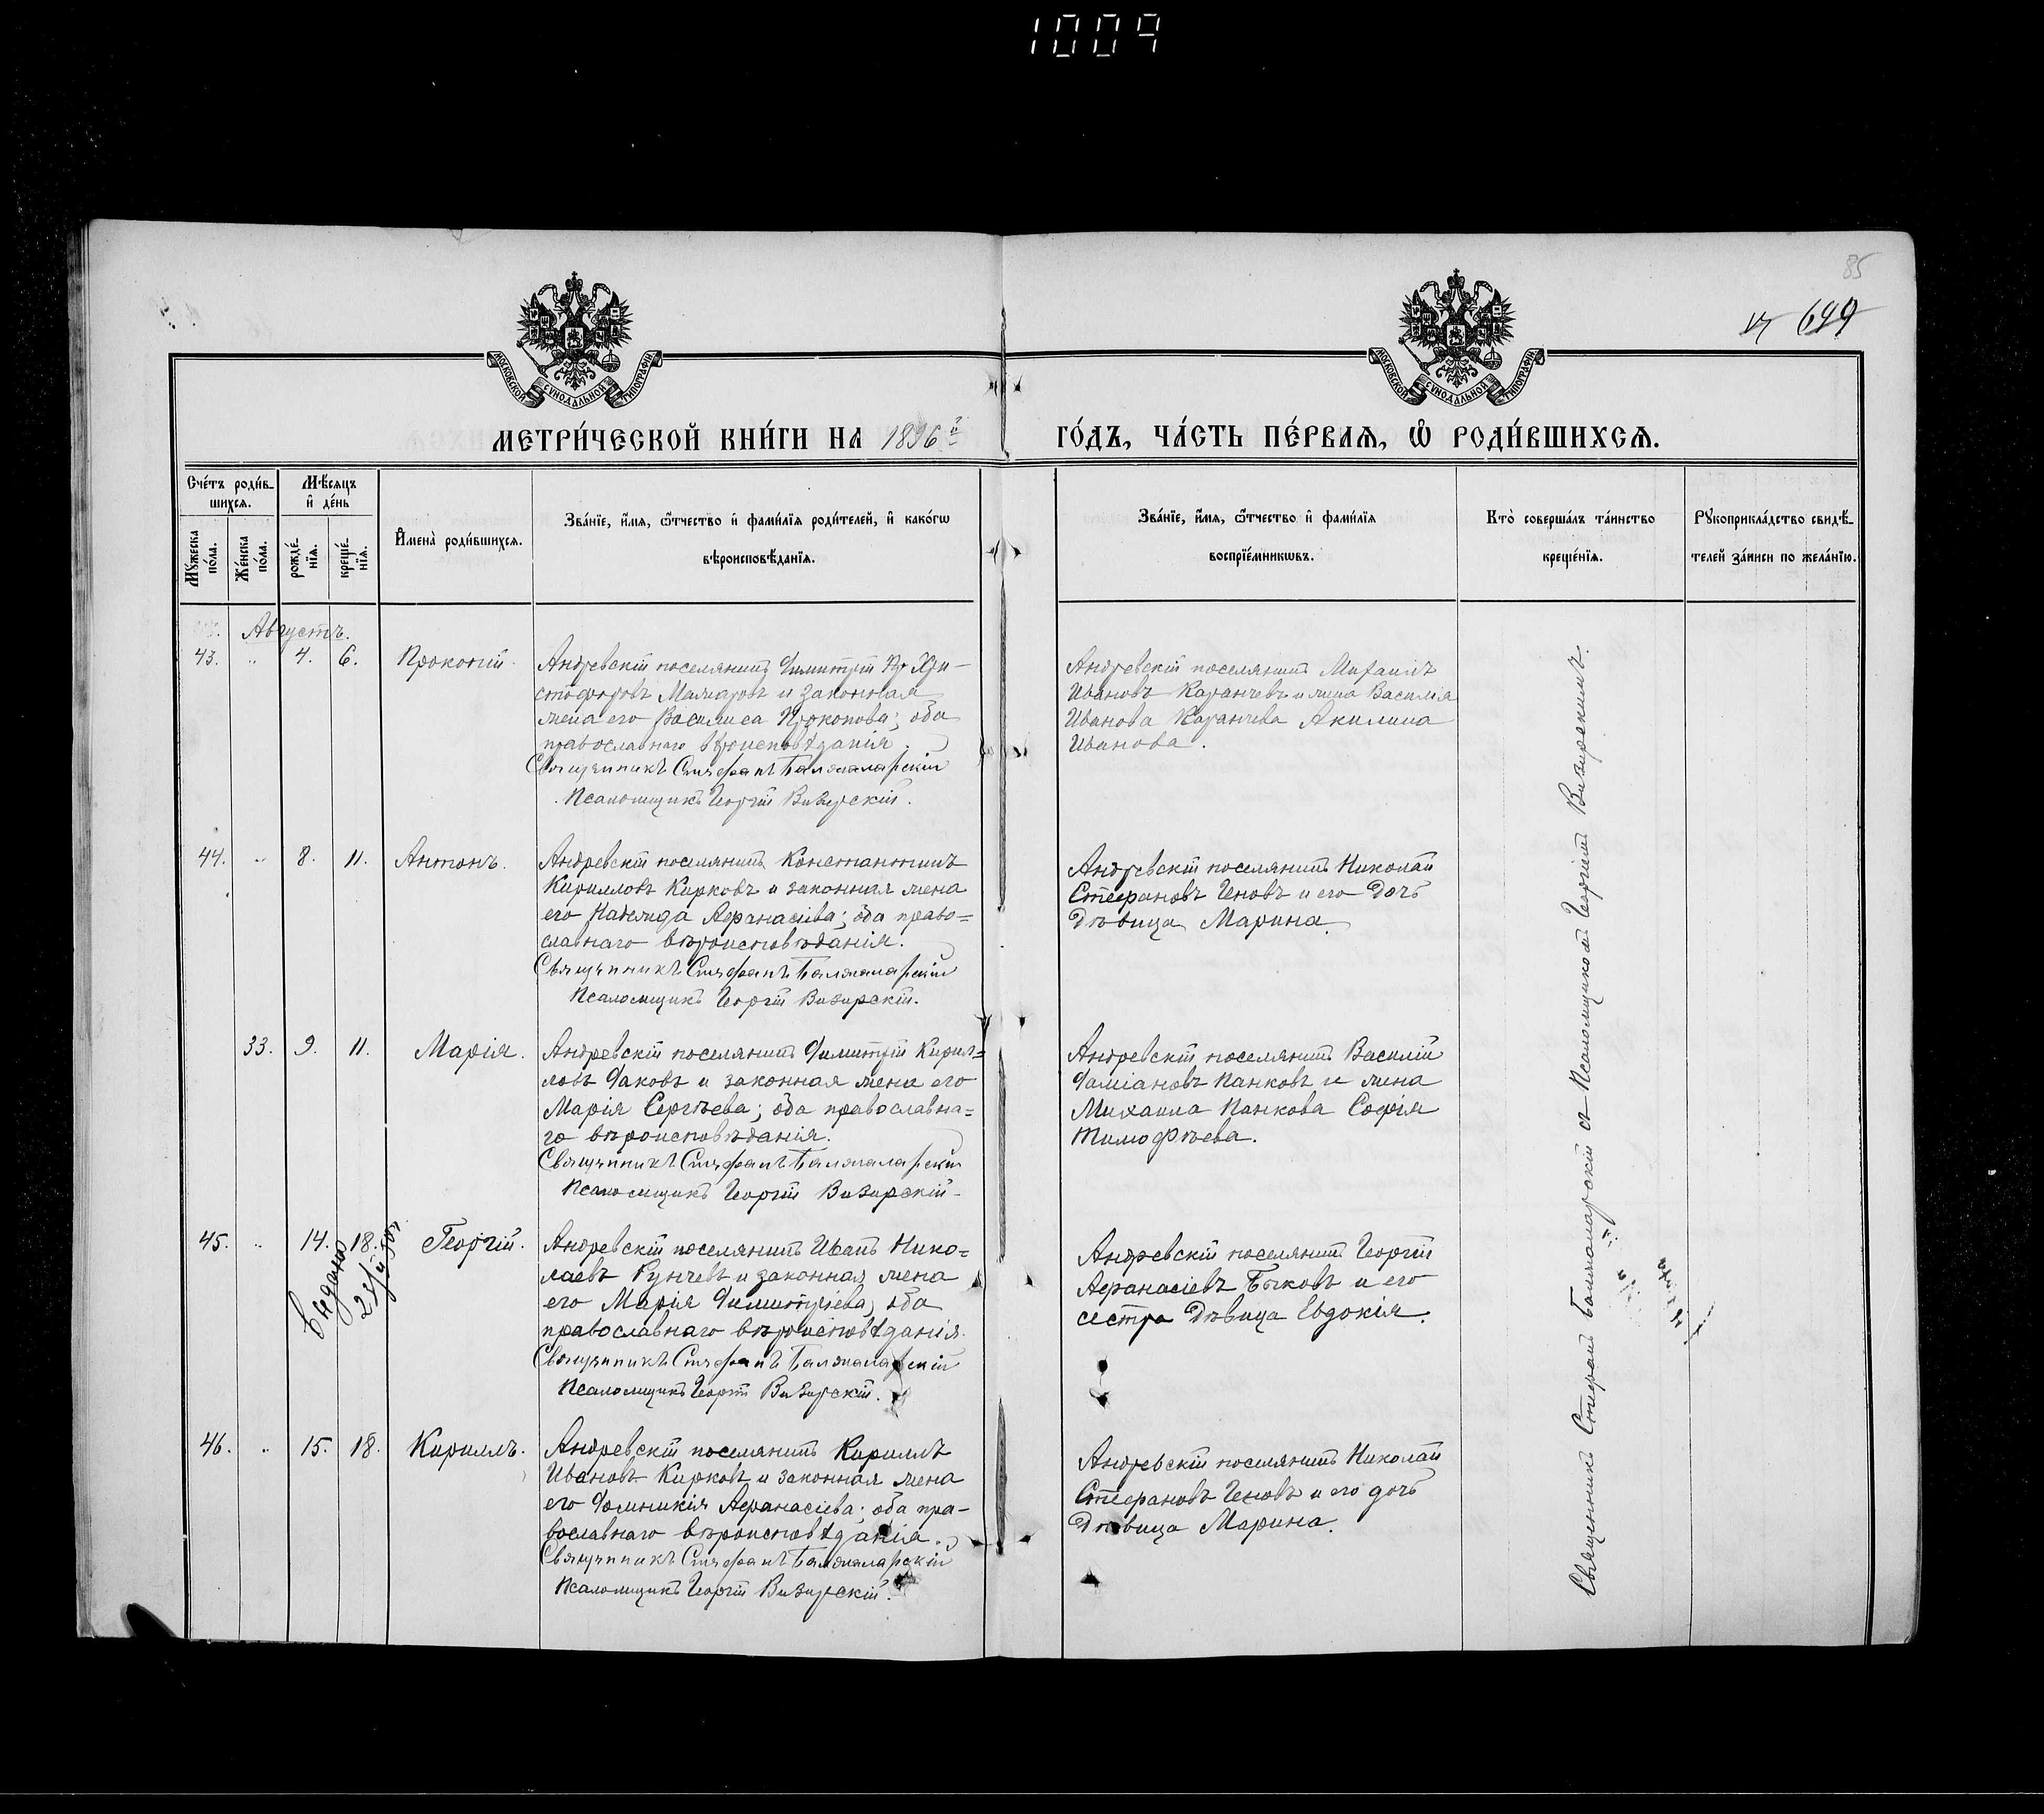 1009
85
699
МОСКОВСКОЙ СѴНОДАЛЬНОЙ ТИПОГРАФІИ
МОСКОВСКОЙ СѴНОДАЛЬНОЙ ТИПОГРАФІИ
МЕТРИ́ЧЕСКОЙ КНИ́ГИ НА 1896й
ГО́ДЪ, ЧА́СТЬ ПЕ́РВАЯ, Ѡ РОДИ́ВШИХСЯ.
Сче́тъ роди́в-
шихся.
Мꙋ́жеска по́ла.
Же́нска по́ла.
Мѣ́сяцъ
и де́нь
рожде́-
нїя.
креще́-
нїя.
И҆мена̀ роди́вшихся.
Зва́нїе, и҆́мя, ѻ҆́тчество и҆ фами́лїя роди́телей, и҆ како́гѡ
вѣроисповѣ́данїя.
Зва́нїе, и҆́мя, ѻ҆́тчество и҆ фами́лїя
воспрїе́мникѡвъ.
Кто̀ соверша́лъ та́инство
креще́нїя.
Рꙋкоприкла́дство свидѣ́-
телей за́писи по жела́нїю.
Августъ.
43. „ 4. 6. Прокопій.
Андревскій поселянинъ Димитрій Хри-
стофоровъ Малиаровъ и законная
жена его Василиса Прокопова; оба
православнаго вѣроисповѣданія.
Священникъ Стефанъ Балжаларскій
Псаломщикъ Георгій Визирскій.
Андревскій поселянинъ Михаилъ
Ивановъ Каранчевъ и жена Василія
Иванова Каранчева Акилина
Иванова.
44. „ 8. 11. Антонъ.
Андревскій поселянинъ Константинъ
Кирилловъ Кирковъ и законная жена
его Надежда Афанасіева; оба право=
славнаго вѣроисповѣданія.
Священникъ Стефанъ Балжаларскій
Псаломщикъ Георгій Визирскій.
Андревскій поселянинъ Николай
Стефановъ Геновъ и его дочь
дѣвица Марина.
33. 9. 11. Марія.
Андревскій поселянинъ Димитрій Кирил=
ловъ Даковъ и законная жена его
Марія Сергѣева; оба православна=
го вѣроисповѣданія.
Священникъ Стефанъ Балжаларскій
Псаломщикъ Георгій Визирскій.
Андревскій поселянинъ Василій
Даміановъ Панковъ и жена
Михаила Панкова Софія
Тимофѣева.
45. „ 14. 18. Георгій.
Выдано
Андревскій поселянинъ Иванъ Нико=
лаевъ Рунчевъ и законная жена
его Марія Димитріева; оба
православнаго вѣроисповѣданія.
Священникъ Стефанъ Балжаларскій
Псаломщикъ Георгій Визирскій.
Андревскій поселянинъ Георгій
Афанасіевъ Быковъ и его
сестра дѣвица Евдокія.
46. „ 15. 18. Кириллъ.
Андревскій поселянинъ Кириллъ
Ивановъ Кирковъ и законная жена
его Домникія Афанасіева; оба пра-
вославнаго вѣроисповѣданія.
Священникъ Стефанъ Балжаларскій
Псаломщикъ Георгій Визирскій.
Андревскій поселянинъ Николай
Стефановъ Геновъ и его дочь
дѣвица Марина.
Священникъ Стефанъ Балжаларскій съ Псаломщикомъ Георгіемъ Визирскимъ.